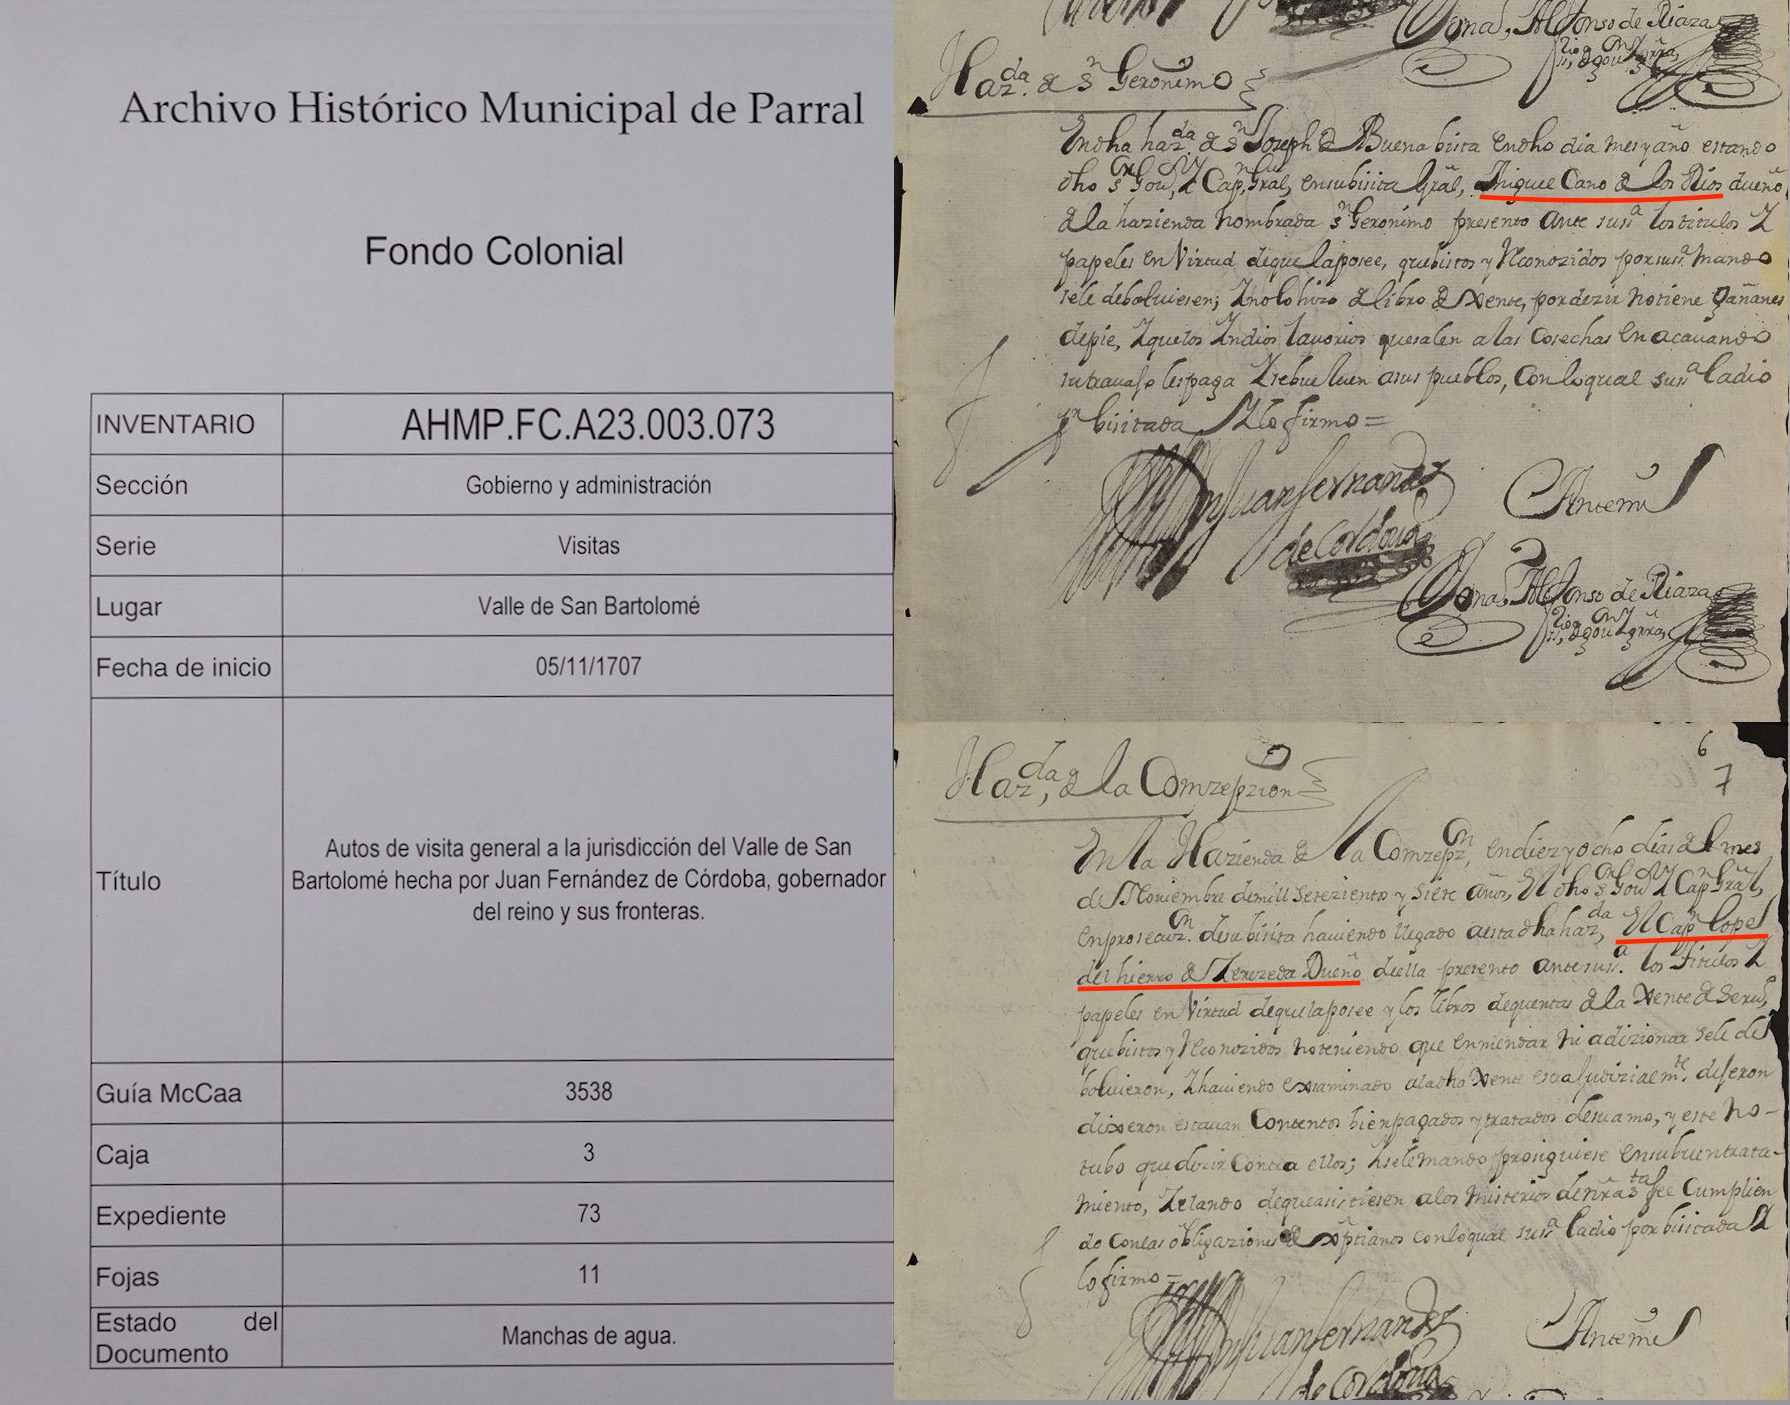 Archivo Histórico Municipal de Parral
Fondo Colonial
INVENTARIO AHMP.FC.A23.003.073
Sección Gobierno y administración
Serie Visitas
Lugar Valle de San Bartolomé
Fecha de inicio 05/11/1707
Título Autos de visita general a la jurisdicción del Valle de San
Bartolomé hecha por Juan Fernández de Córdoba, gobernador
del reino y sus fronteras.
Guía McCaa 3538
Caja 3
Expediente 73
Fojas 11
Estado del
Documento Manchas de agua.
Alfonso de Riaza
Hazda. de Sn Geronimo
En dha hazda de Sn Joseph de Buena bista en dho dia mes y año estando
dho Sr Govor Y Capn Gral, en su bisita Gral, Miguel Cano de los Rios dueño
de la hazienda nombrada Sn Geronimo presento ante susa los titulos Y
papeles en Virtud de que la posee, que bistos y Reconozidos por susa mando
se le debolviesen; Y no lo hizo de libro de Xente, por dezir no tiene gañanes
de pie, Y que los Yndios lavorios que salen a las Cosechas en acavando
su travajo les paga Y se buelven a sus pueblos, Con lo qual susa la dio
pr bisitada Y lo firmo =
Juan fernandez
de Cordova
Ante mi
Alfonso de Riaza
6
7
Hazda, de la Comzepzion
En la Hazienda de la Comzepzn, en diez y ocho dias del mes
de Noviembre de mill setezientos y siete años, El dho Sr Govor Y Capn Gral,
en prosecuzn. de su bisita haviendo llegado a esta dha hazda, El Capn Lopes
del hierro de Zerezeda Dueño della presento ante susa. los titulos Y
papeles en Virtud de que la posee y los libros de quentas de la Xente de Servo,
que bistos y Reconozidos no teniendo que enmendar ni adizionar se le de
bolvieron, Y haviendo examinado a la dha Xente extrajudizialmte. dijeron
dixeron estavan Contentos bien pagados y tratados de su amo, y este no-
tubo que dezir Contra ellos; Y se le mando prosiguiese en su buen trata-
miento, Zelando de que asistiesen a los Misterios de nra sta fee Cumplien
do con las obligaziones de Xptianos con lo qual susa la dio por bisitada Y
lo firmo =
Juan fernandez
de Cordova
Ante mi